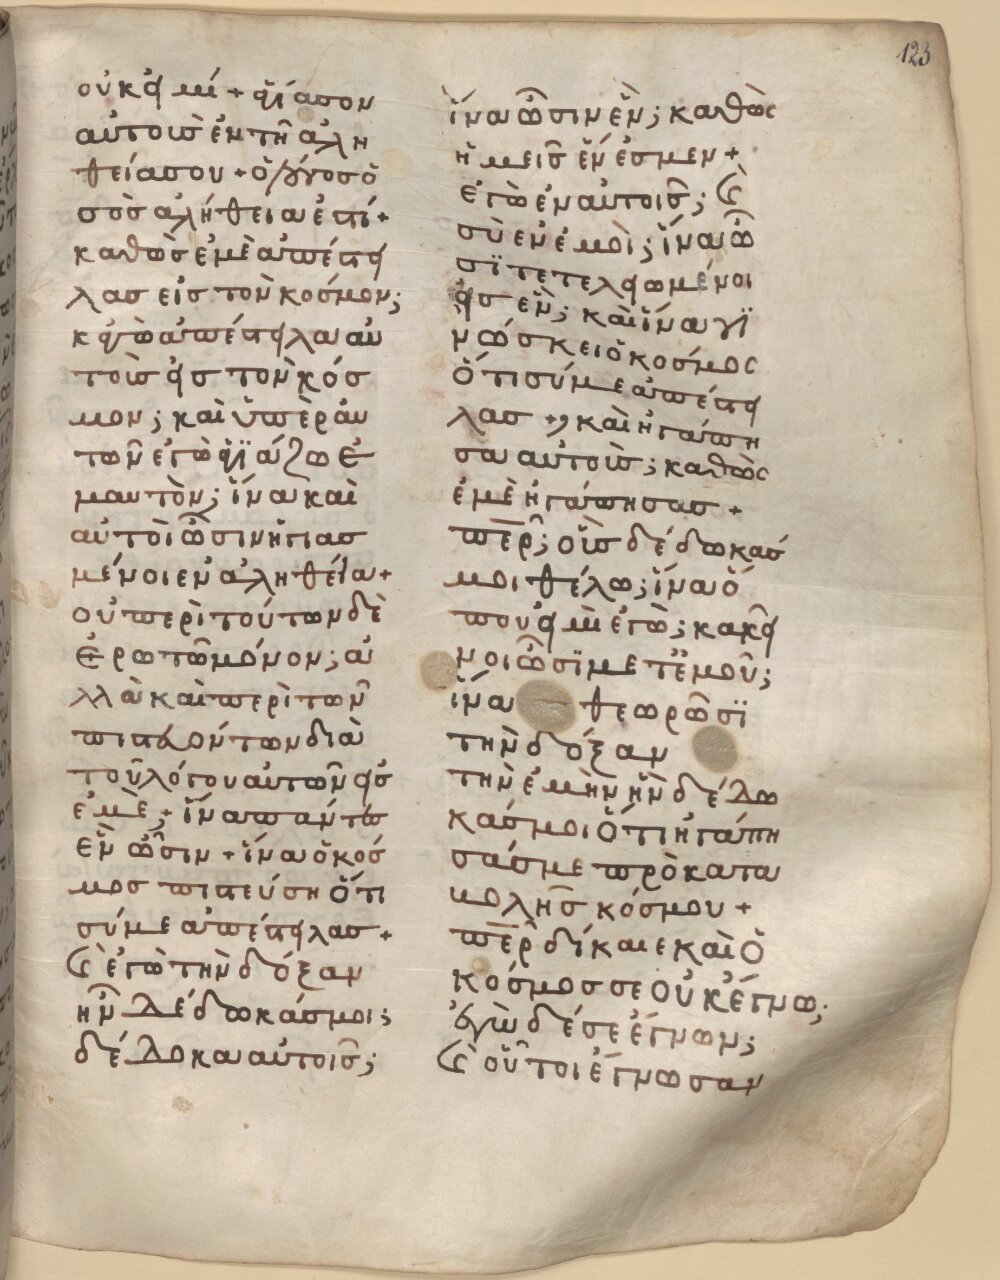 123
οὐκ εἰμί + ἁγίασον
αὐτοὺσ ἐν τῆ ἀλη
θεία σου + ὁ λόγοσ ὁ
σὸσ ἀλήθεια ἐστί +
καθὼσ ἐμὲ ἀπέστει
λασ εἰσ τὸν κόσμον;
κἀγὼ ἀπέστειλα αὐ
τοὺσ εἰσ τὸν κόσ
μον; καὶ ὑπὲρ αὐ
τῶν ἐγὼ ἁγϊάζω ἐ
μαυτὸν; ἵνα καὶ
αὐτοὶ ὦσιν ἡγιασ
μένοι ἐν ἀληθεία +
οὐ περὶ τούτων δὲ
ἐρωτῶ μόνον; ἀ
λλὰ καὶ περὶ τῶν
πιστευόντων διὰ
τοῦ λόγου αὐτῶν εἰσ
ἐμὲ; + ἵνα πάντεσ
ἓν ὦσιν + ἵνα ὁ κόσ
μοσ πιστεύση ὅτι
σύ με ἀπέστειλασ +
καὶ ἐγὼ τὴν δόξαν
ἣν δέδωκάσ μοι;
δέδωκα αὐτοῖσ;
ἵνα ὦσιν ἓν; καθὼσ
ἡμεῖσ ἕν ἐσμεν +
ἐγὼ ἐν αὐτοῖσ; καὶ
σὺ ἐν ἐμοὶ; ἵνα ὦ
σϊ τετελειωμένοι
εἰσ ἓν; καὶ ἵνα γϊ
νώσκει ὁ κόσμοσ
ὅτι σύ με ἀπέστει
λασ +, καὶ ἠγάπη
σα αὐτοὺσ; καθὼσ
ἐμὲ ἠγάπησασ +
περ; οὓσ δέδωκάσ
μοι θέλω; ἵνα ὅ
που εἰμὶ ἐγὼ; κακεῖ
νοι ὦσϊ μετ ἐμοῦ;
ἵνα θεωρῶσϊ
τὴν δόξαν
τὴν ἐμὴν ἣν δέδω
κάσ μοι ὅτι ἠγάπη
σάσ με πρὸ κατα
βολῆσ κόσμου +
περ δίκαιε καὶ ὁ
κόσμοσ σε οὐκ ἔγνω;
ἐγὼ δέ σε ἔγνων;
καὶ οὗτοι ἔγνωσαν